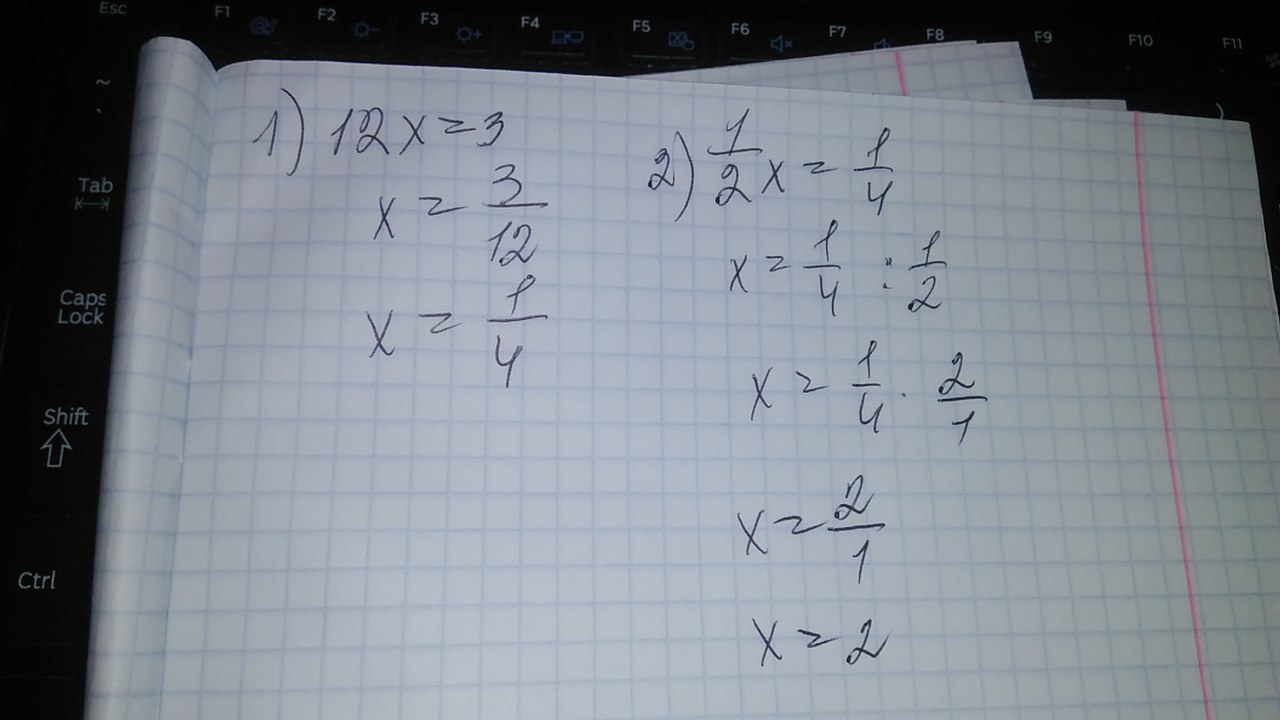 Esc F1 F2 F3 F4 F5 F6 F7 F8 F9 F10 F11
~
Tab
Caps Lock
Shift
Ctrl
1) 12x=3
x = 3/12
x = 1/4
2) 1/2 x = 1/4
x = 1/4 : 1/2
x = 1/4 · 2/1
x = 2/1
x = 2